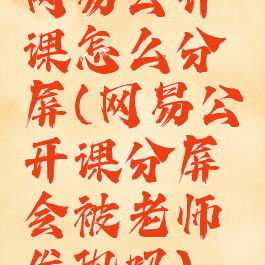 网易公开
课怎么分
屏(网易公
开课分屏
会被老师
发现吗)